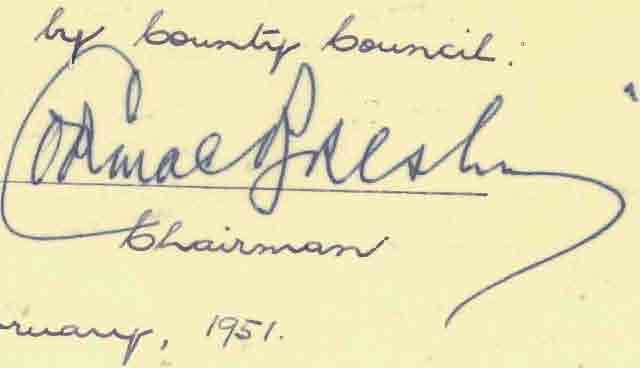 by County Council.
Cormac Breslin
Chairman
ruary, 1951.